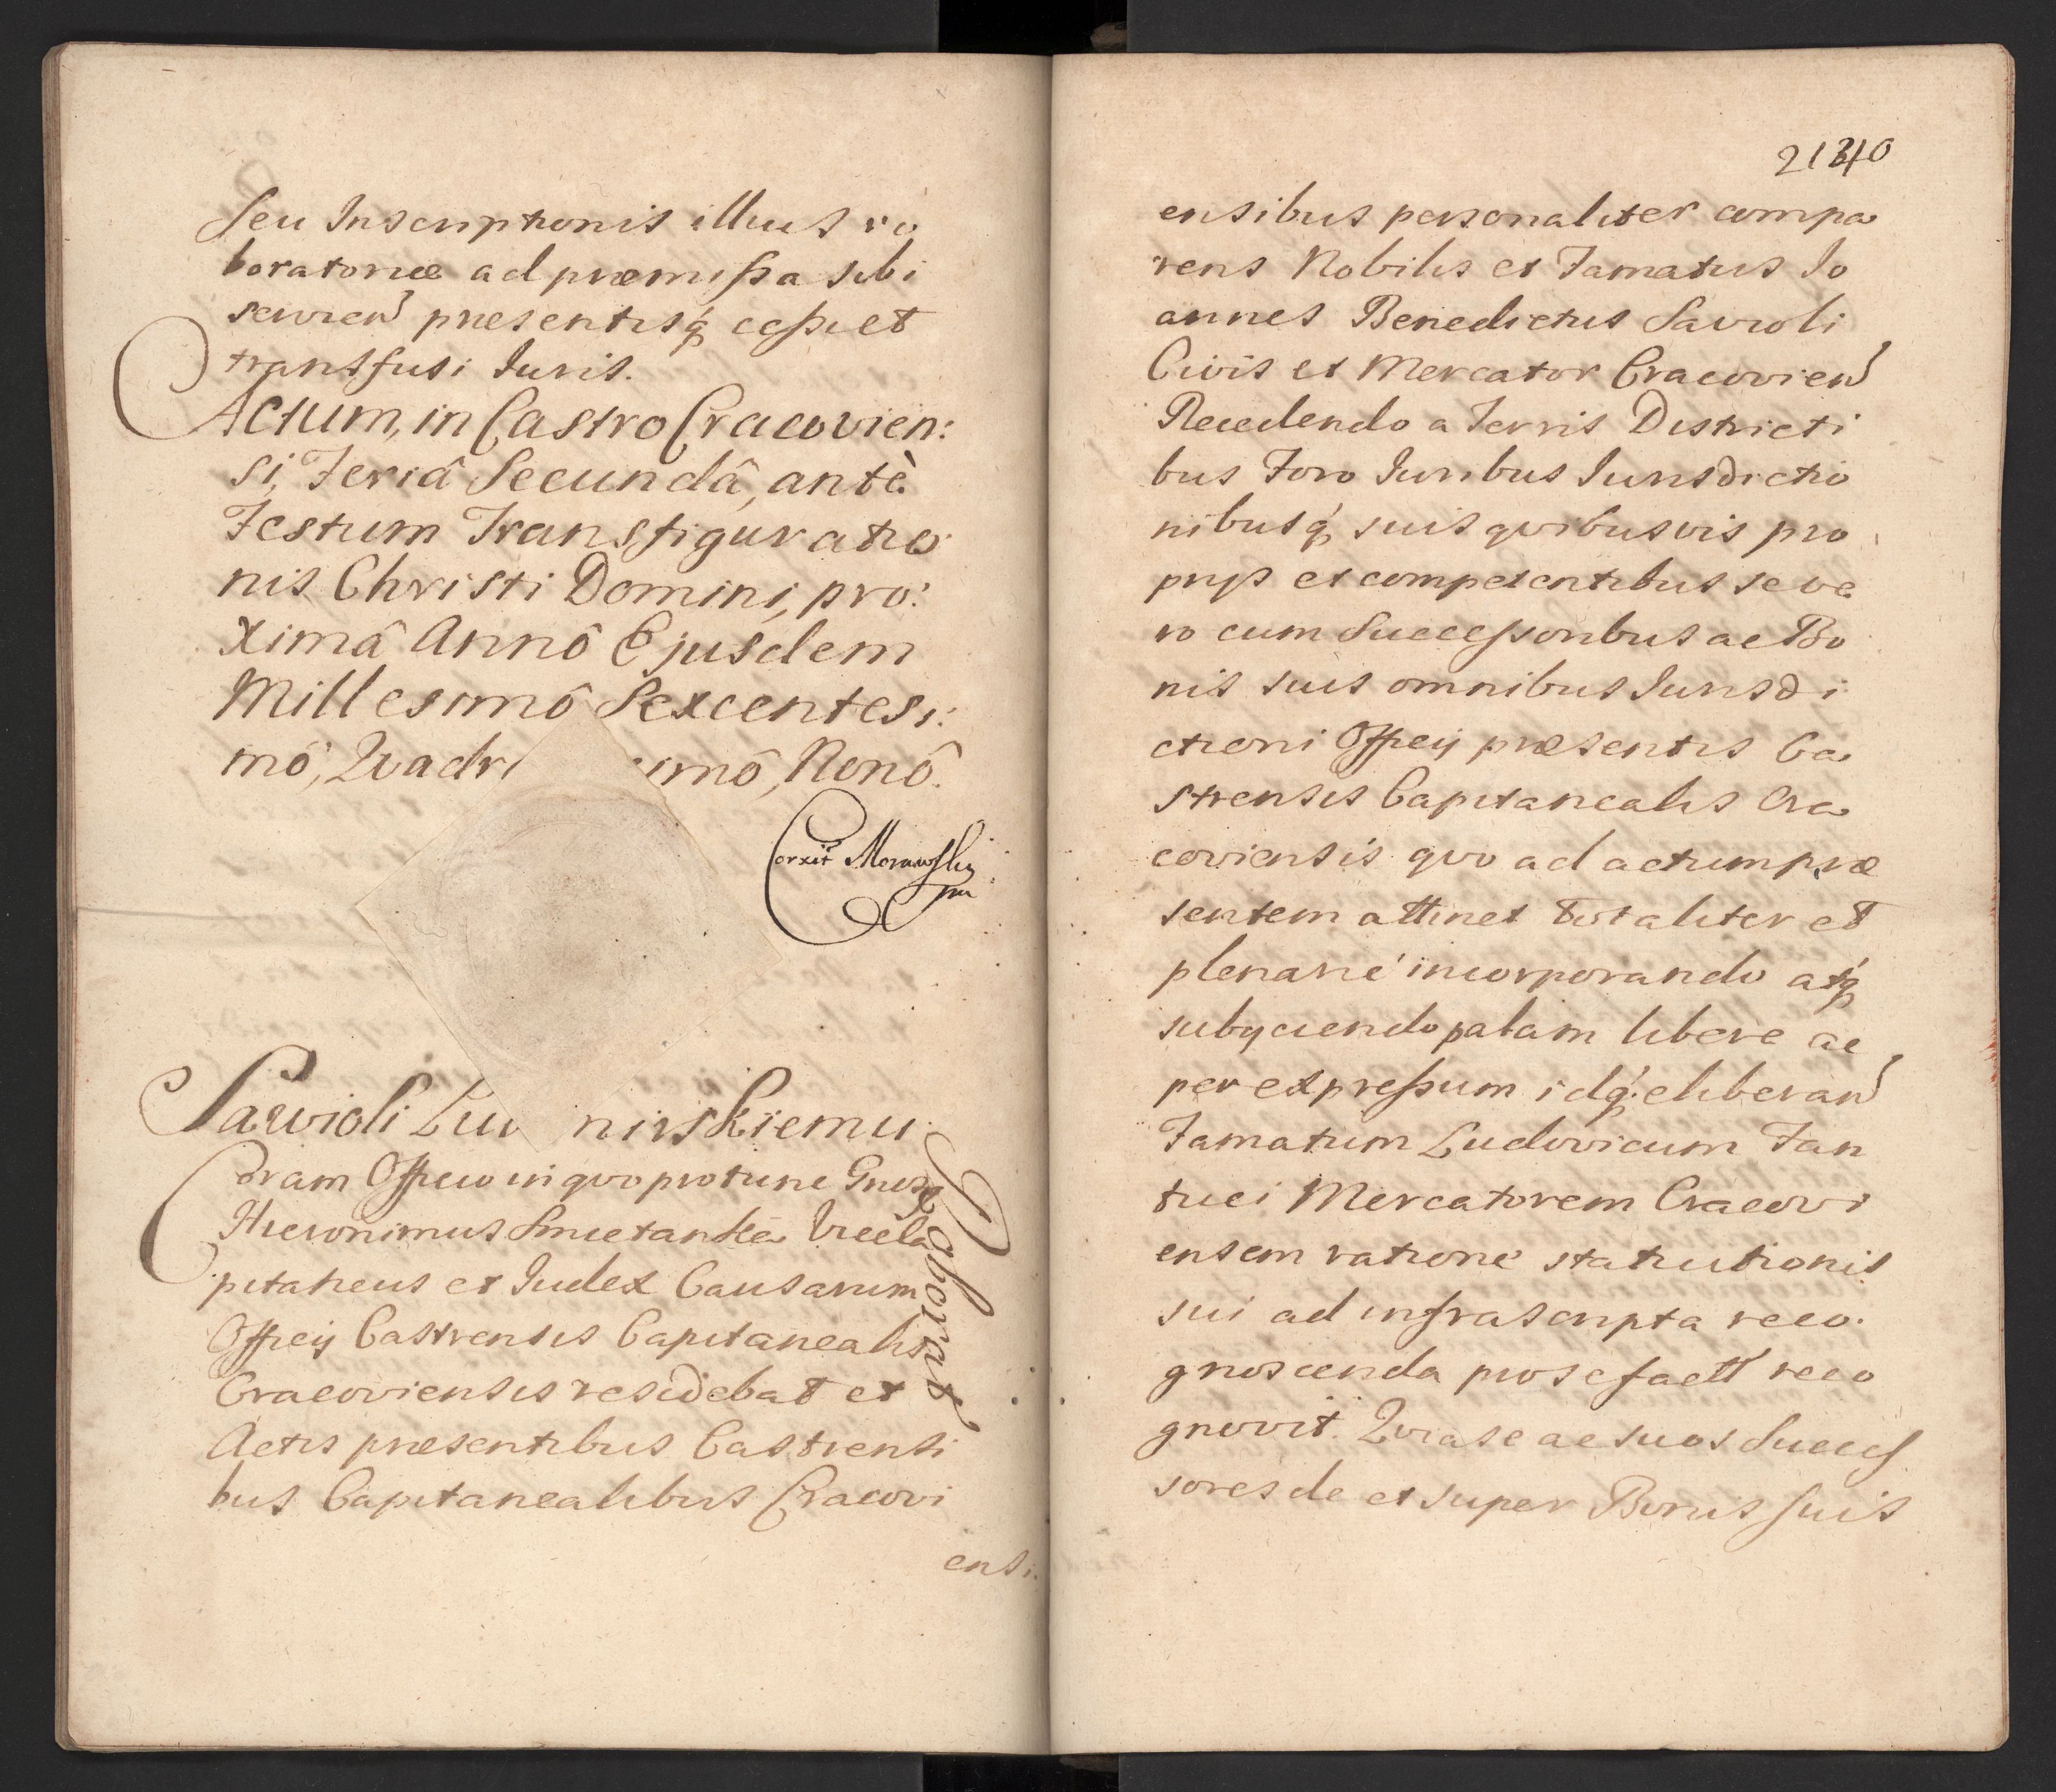 Seu Inscriptionis illius ro
boratoriæ ad præmissa sibi
servien præsentisq́ cessi et
transfusi Iuris.
Actum, in Castro Cracovien:
si, Feriâ Secundâ, antè
Festum Transfiguratio
nis Christi Domini, pro:
ximâ Annô Ejusdem
Millesimô Sexcentesi:
mô, Quadr imô, Nonô.
Corxit Morawsky
mp
Sawioli Lu nirskiemu
Coram Officio in quo protunc Gnosus
Hieronimus Smietanka Viceca
pitaneus et Iudex Causarum
Officij Castrensis Capitanealis
Cracoviensis residebat et
Actis præsentibus Castrensi
bus Capitanealibus Cracovi
ensi.
Roborat
21340
ensibus personaliter compa
rens Nobilis et Famatus Io
annes Benedictus Savioli
Civis et Mercator Cracovien
Recedendo a Terris Districti
bus Foro Iuribus Iurisdictio
nibusq́ suis quibusvis pro
prijs et competentibus se ve
ro cum Successoribus ac Bo
nis suis omnibus Iurisdi
ctioni Officij præsentis Ca
strensis Capitanealis Cra
coviensis quo ad actum præ
sentem attinet totaliter et
plenarié incorporando atq́
subijciendo palam libere ac
per expressum idq́ eliberan
Famatum Ludovicum Fan
tuci Mercatorem Cracovi
ensem ratione statuitionis
sui ad infrascripta reco.
gnoscenda pro se factt reco
gnovit. Quia se ac suos Succes
sores de et super Bonis suis